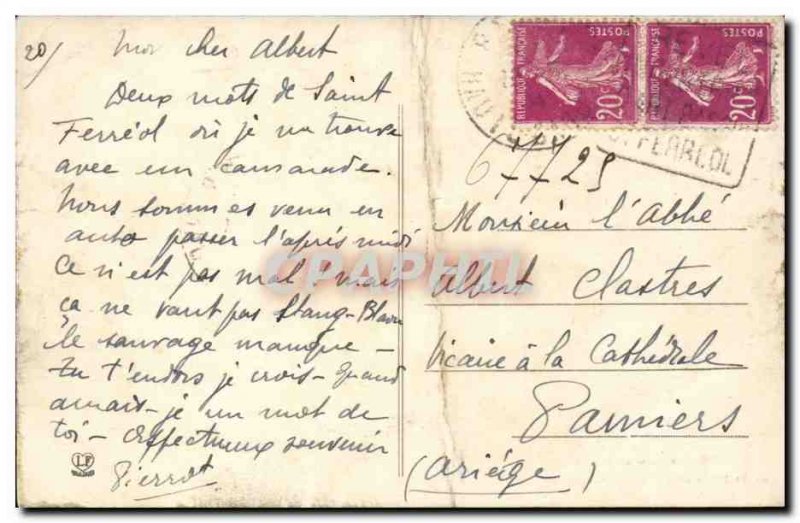 20/
Mon cher Albert
Deux mots de Saint
Ferréol où je me trouve
avec un camarade.
Nous sommes venu en
auto passer l'après midi
Ce n'est pas mal ! mais
ça ne vaut pas Stang-
le sauvage manque -
Tu t'endors je crois - Quand
aurais-je un mot de
toi - Affectueux souvenir
Pierrot
LF
REPUBLIQUE FRANÇAISE
POSTES
20c
REPUBLIQUE FRANÇAISE
POSTES
20c
FERREOL
6-7-29
Monsieur l'Abbé
Albert Clastres
Vicaire à la Cathédrale
Pamiers
(Ariège)
CPAPHIL